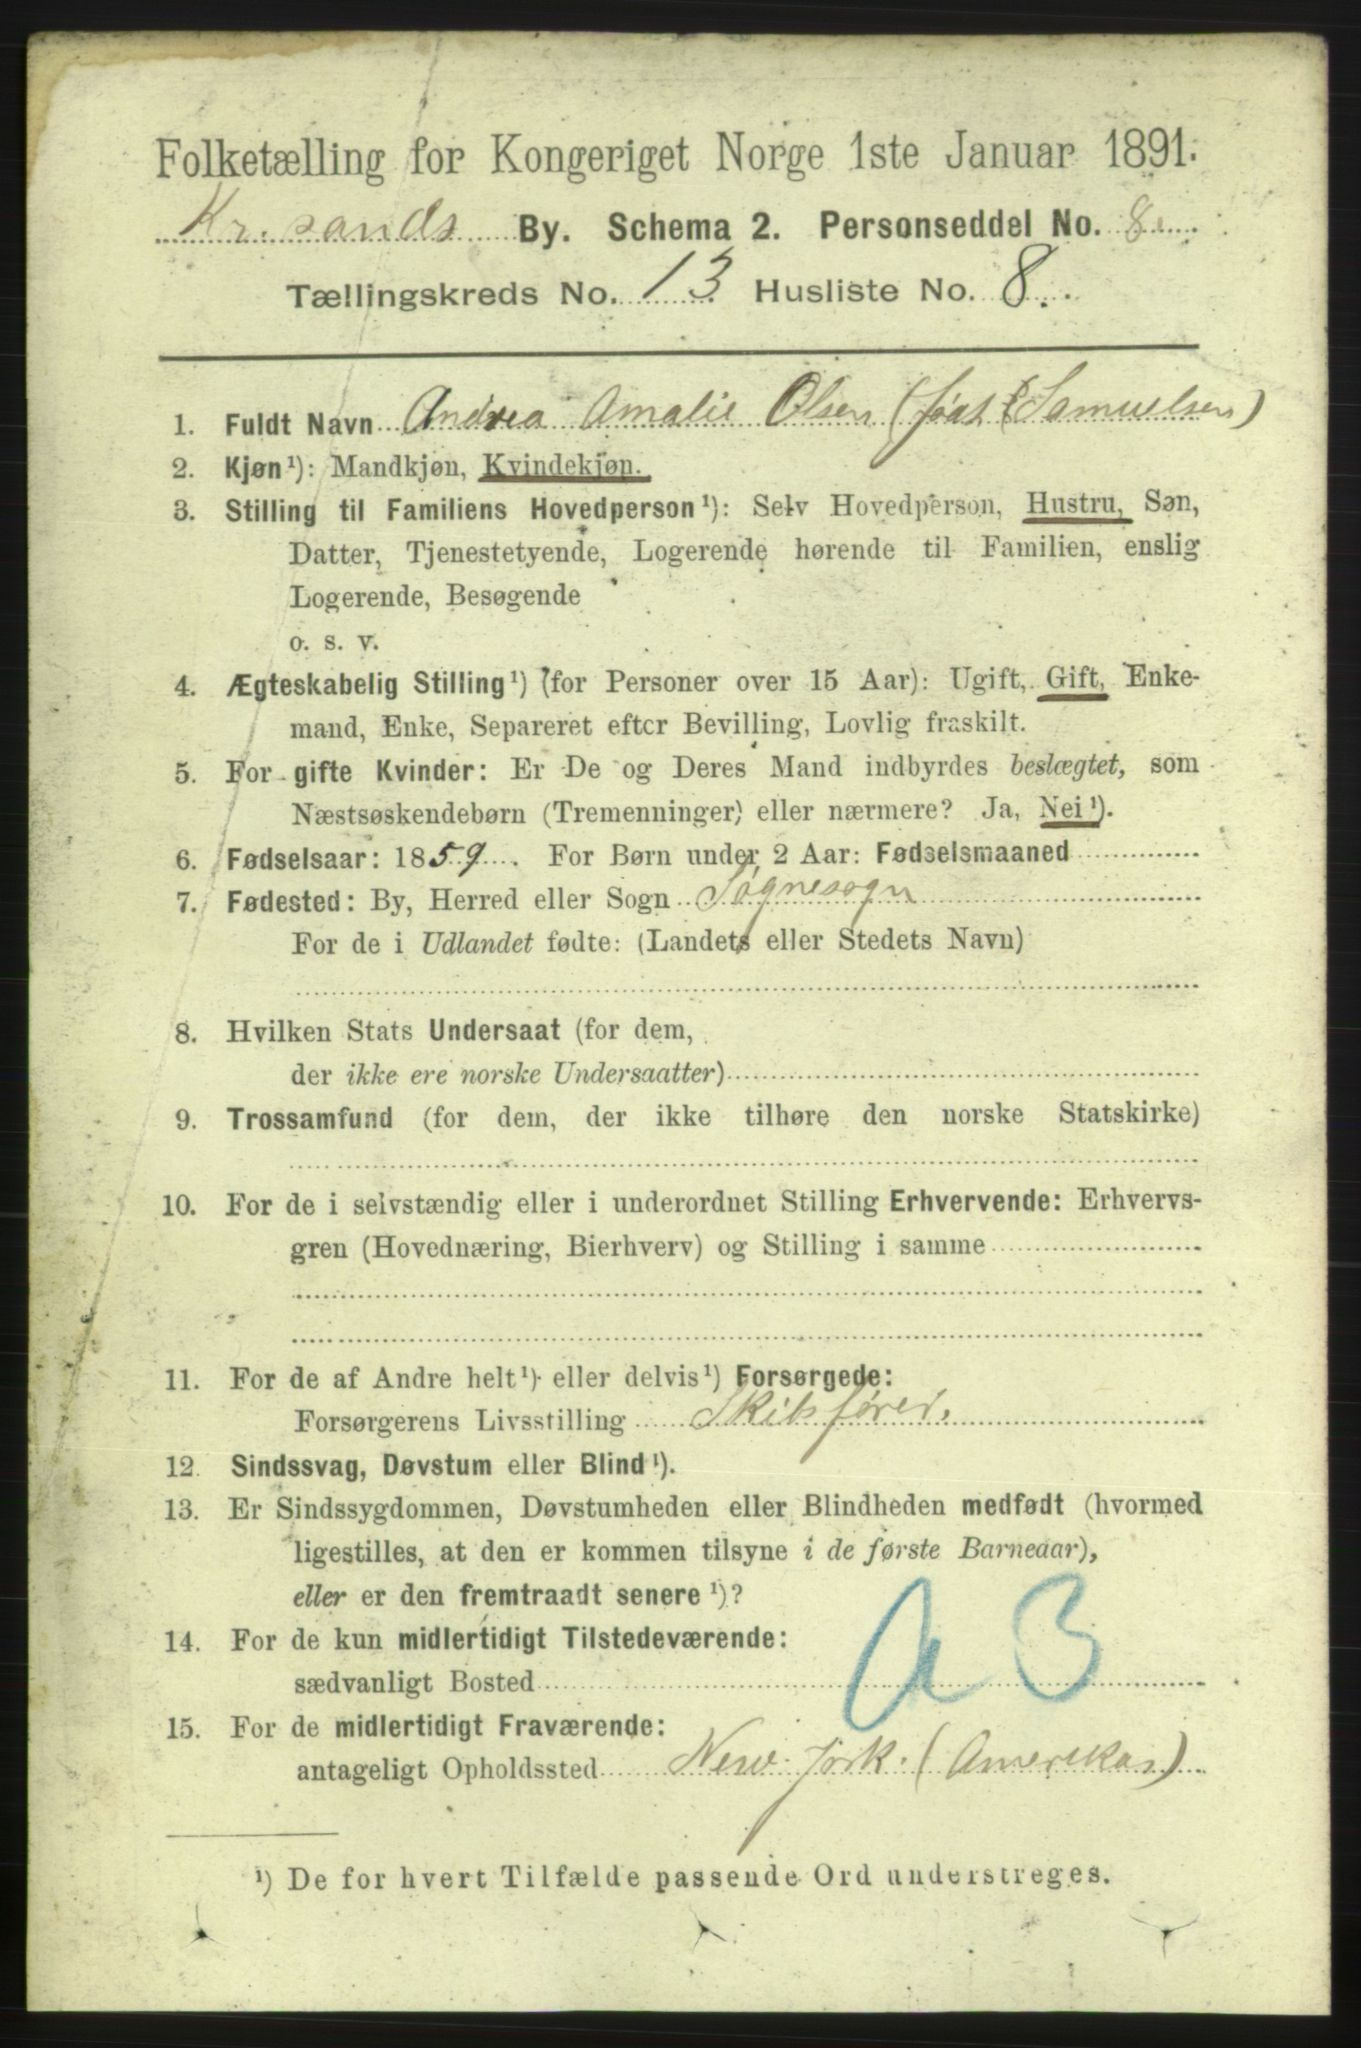 Folketælling for Kongeriget Norge 1ste Januar 1891.
Kr.sands By. Schema 2. Personseddel No. 8.
Tællingskreds No. 13 Husliste No. 8.
1. Fuldt Navn Andrea Amalie Olsen (født Samuelsen)
2. Kjøn¹): Mandkjøn, Kvindekjøn.
3. Stilling til Familiens Hovedperson¹): Selv Hovedperson, Hustru, Søn,
Datter, Tjenestetyende, Logerende hørende til Familien, enslig
Logerende, Besøgende
o. s. v.
4. Ægteskabelig Stilling¹) (for Personer over 15 Aar): Ugift, Gift, Enke-
mand, Enke, Separeret efter Bevilling, Lovlig fraskilt.
5. For gifte Kvinder: Er De og Deres Mand indbyrdes beslægtet, som
Næstsøskendebørn (Tremenninger) eller nærmere? Ja, Nei¹).
6. Fødselsaar: 1859. For Børn under 2 Aar: Fødselsmaaned
7. Fødested: By, Herred eller Sogn Søgnesogn
For de i Udlandet fødte: (Landets eller Stedets Navn)
8. Hvilken Stats Undersaat (for dem,
der ikke ere norske Undersaatter)
9. Trossamfund (for dem, der ikke tilhøre den norske Statskirke)
10. For de i selvstændig eller i underordnet Stilling Erhvervende: Erhvervs-
gren (Hovednæring, Bierhverv) og Stilling i samme
11. For de af Andre helt¹) eller delvis¹) Forsørgede:
Forsørgerens Livsstilling Skibsfører.
12. Sindssvag, Døvstum eller Blind¹).
13. Er Sindssygdommen, Døvstumheden eller Blindheden medfødt (hvormed
ligestilles, at den er kommen tilsyne i de første Barneaar),
eller er den fremtraadt senere¹)?
14. For de kun midlertidigt Tilstedeværende:
sædvanligt Bosted
a 3
15. For de midlertidigt Fraværende:
antageligt Opholdssted New. Jørk. (Amerekas)
¹) De for hvert Tilfælde passende Ord understreges.